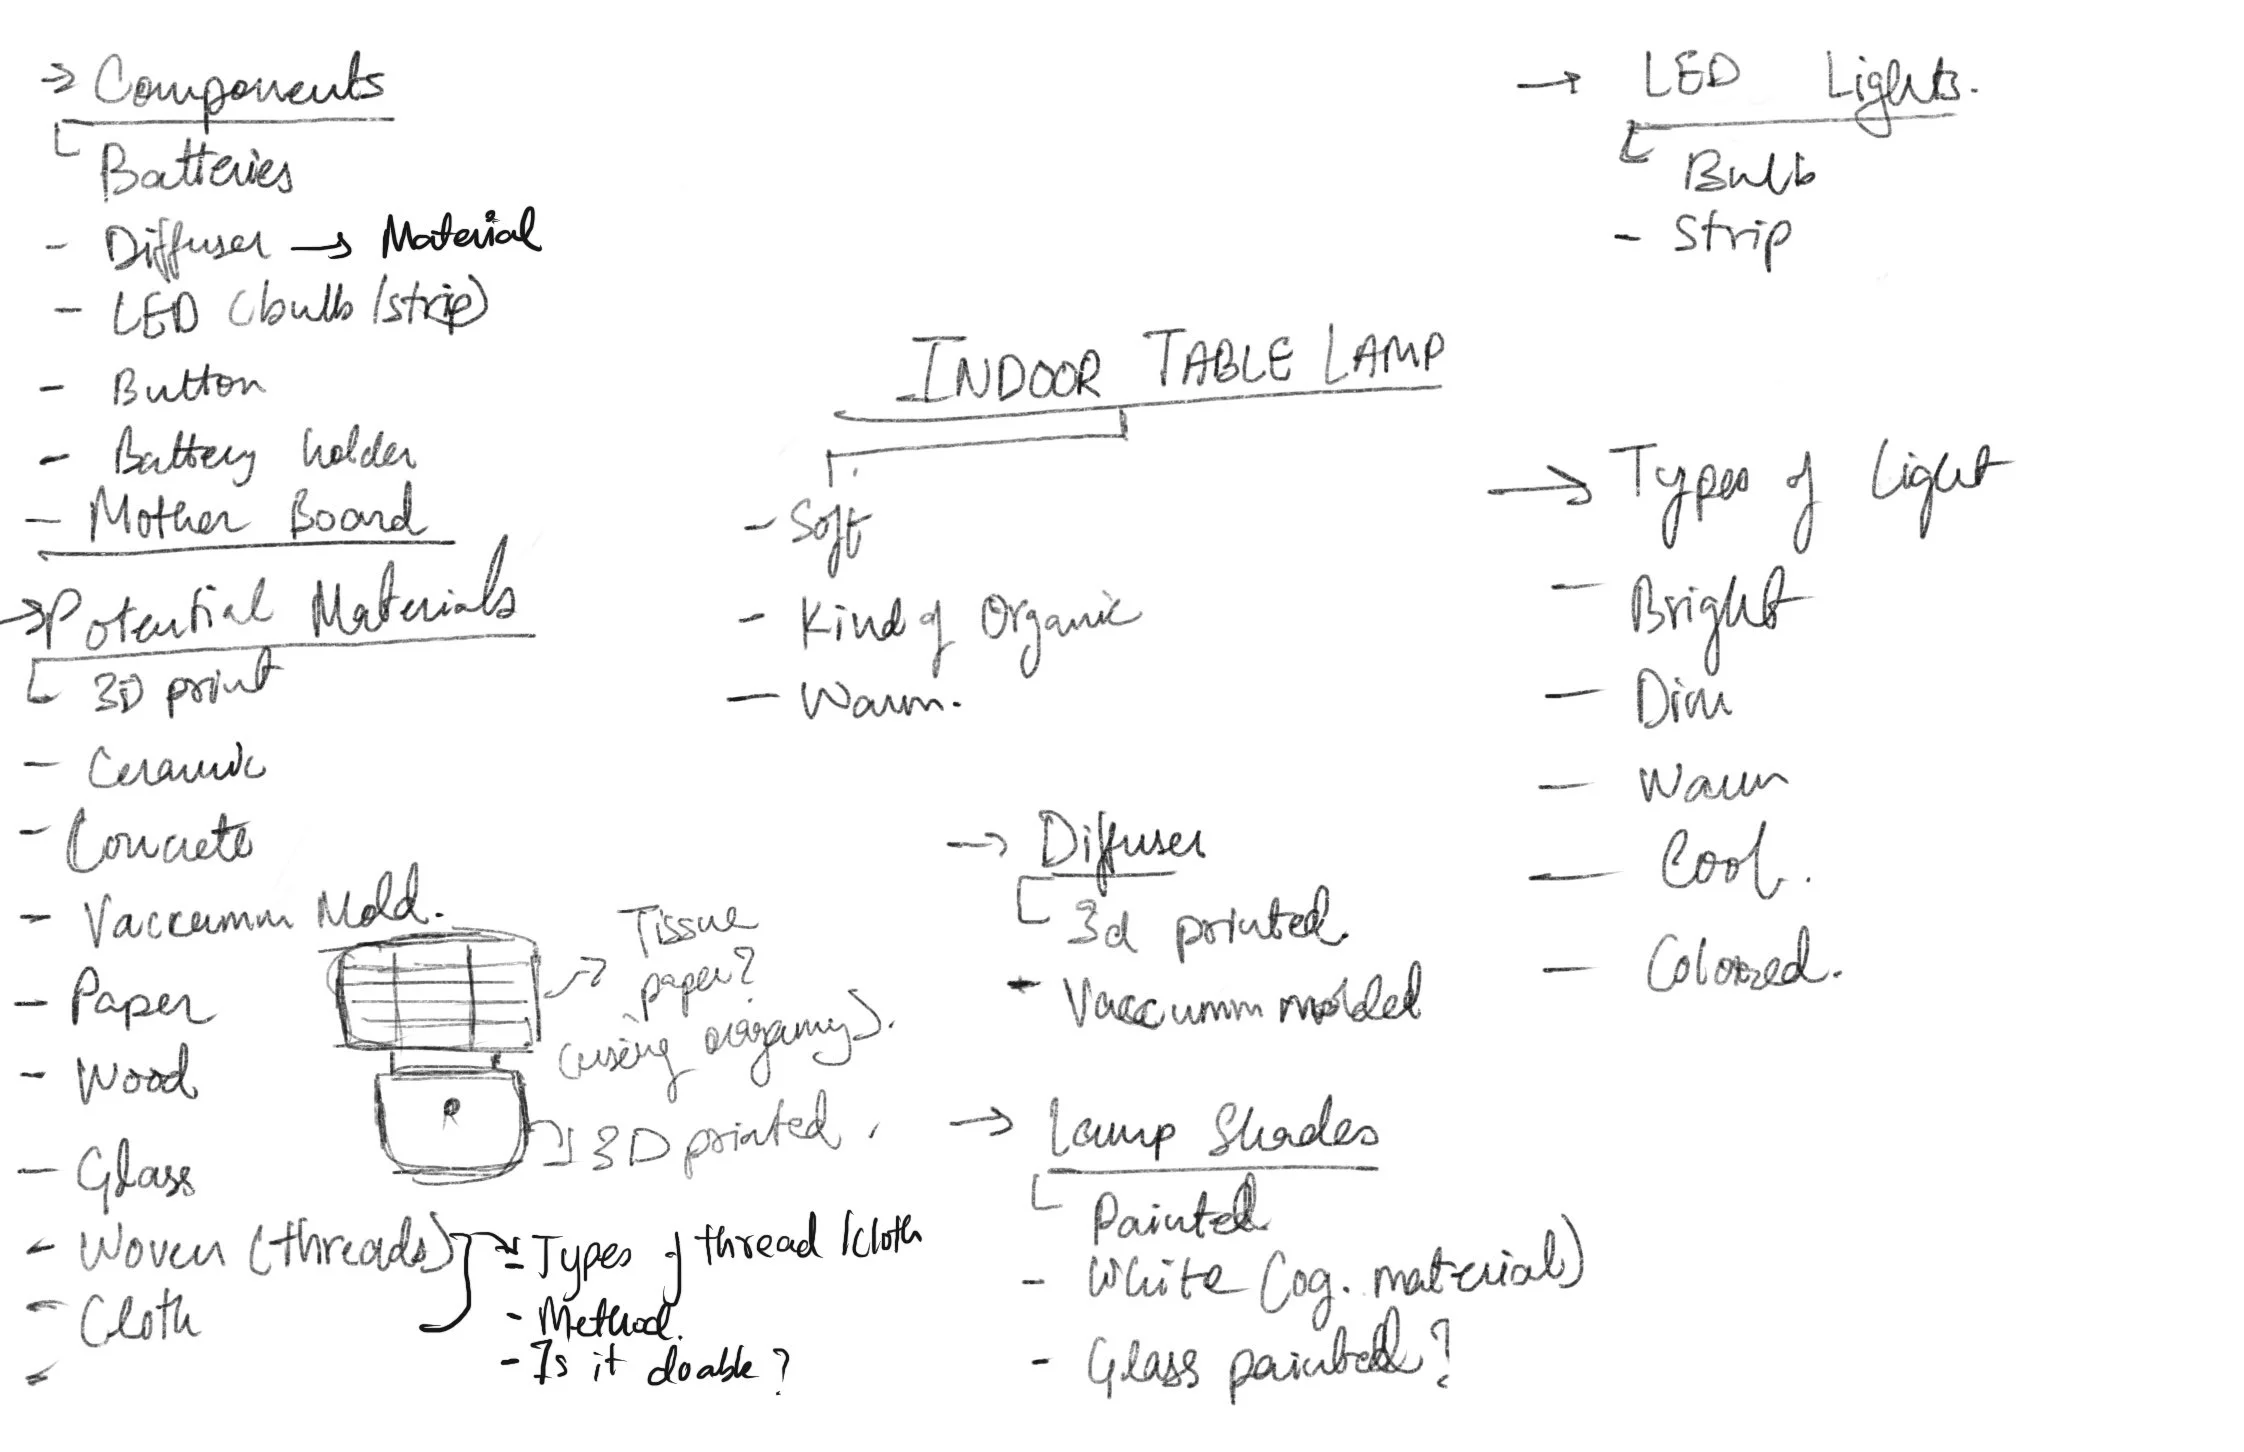 → Components
Batteries
- Diffuser → Material
- LED (bulb/strip)
- Button
- Battery holder
- Mother Board
→ Potential Materials
3D print
- Ceramic
- Concrete
- Vaccumm Mold.
- Paper
- Wood
- Glass
- Woven (threads)
- Cloth
-
→ Tissue
paper?
(using origamy).
R
→ 3D printed.
- Types of thread/cloth
- Method.
- Is it doable?
INDOOR TABLE LAMP
- Soft
- Kind of Organic
- Warm.
→ Diffuser
3d printed.
- Vaccumm molded
→ Lamp Shades
Painted
- White (og. material)
- Glass painted?
→ LED Lights.
Bulb
- Strip
→ Types of Light
- Bright
- Dim
- Warm
- Cool.
- Colored.